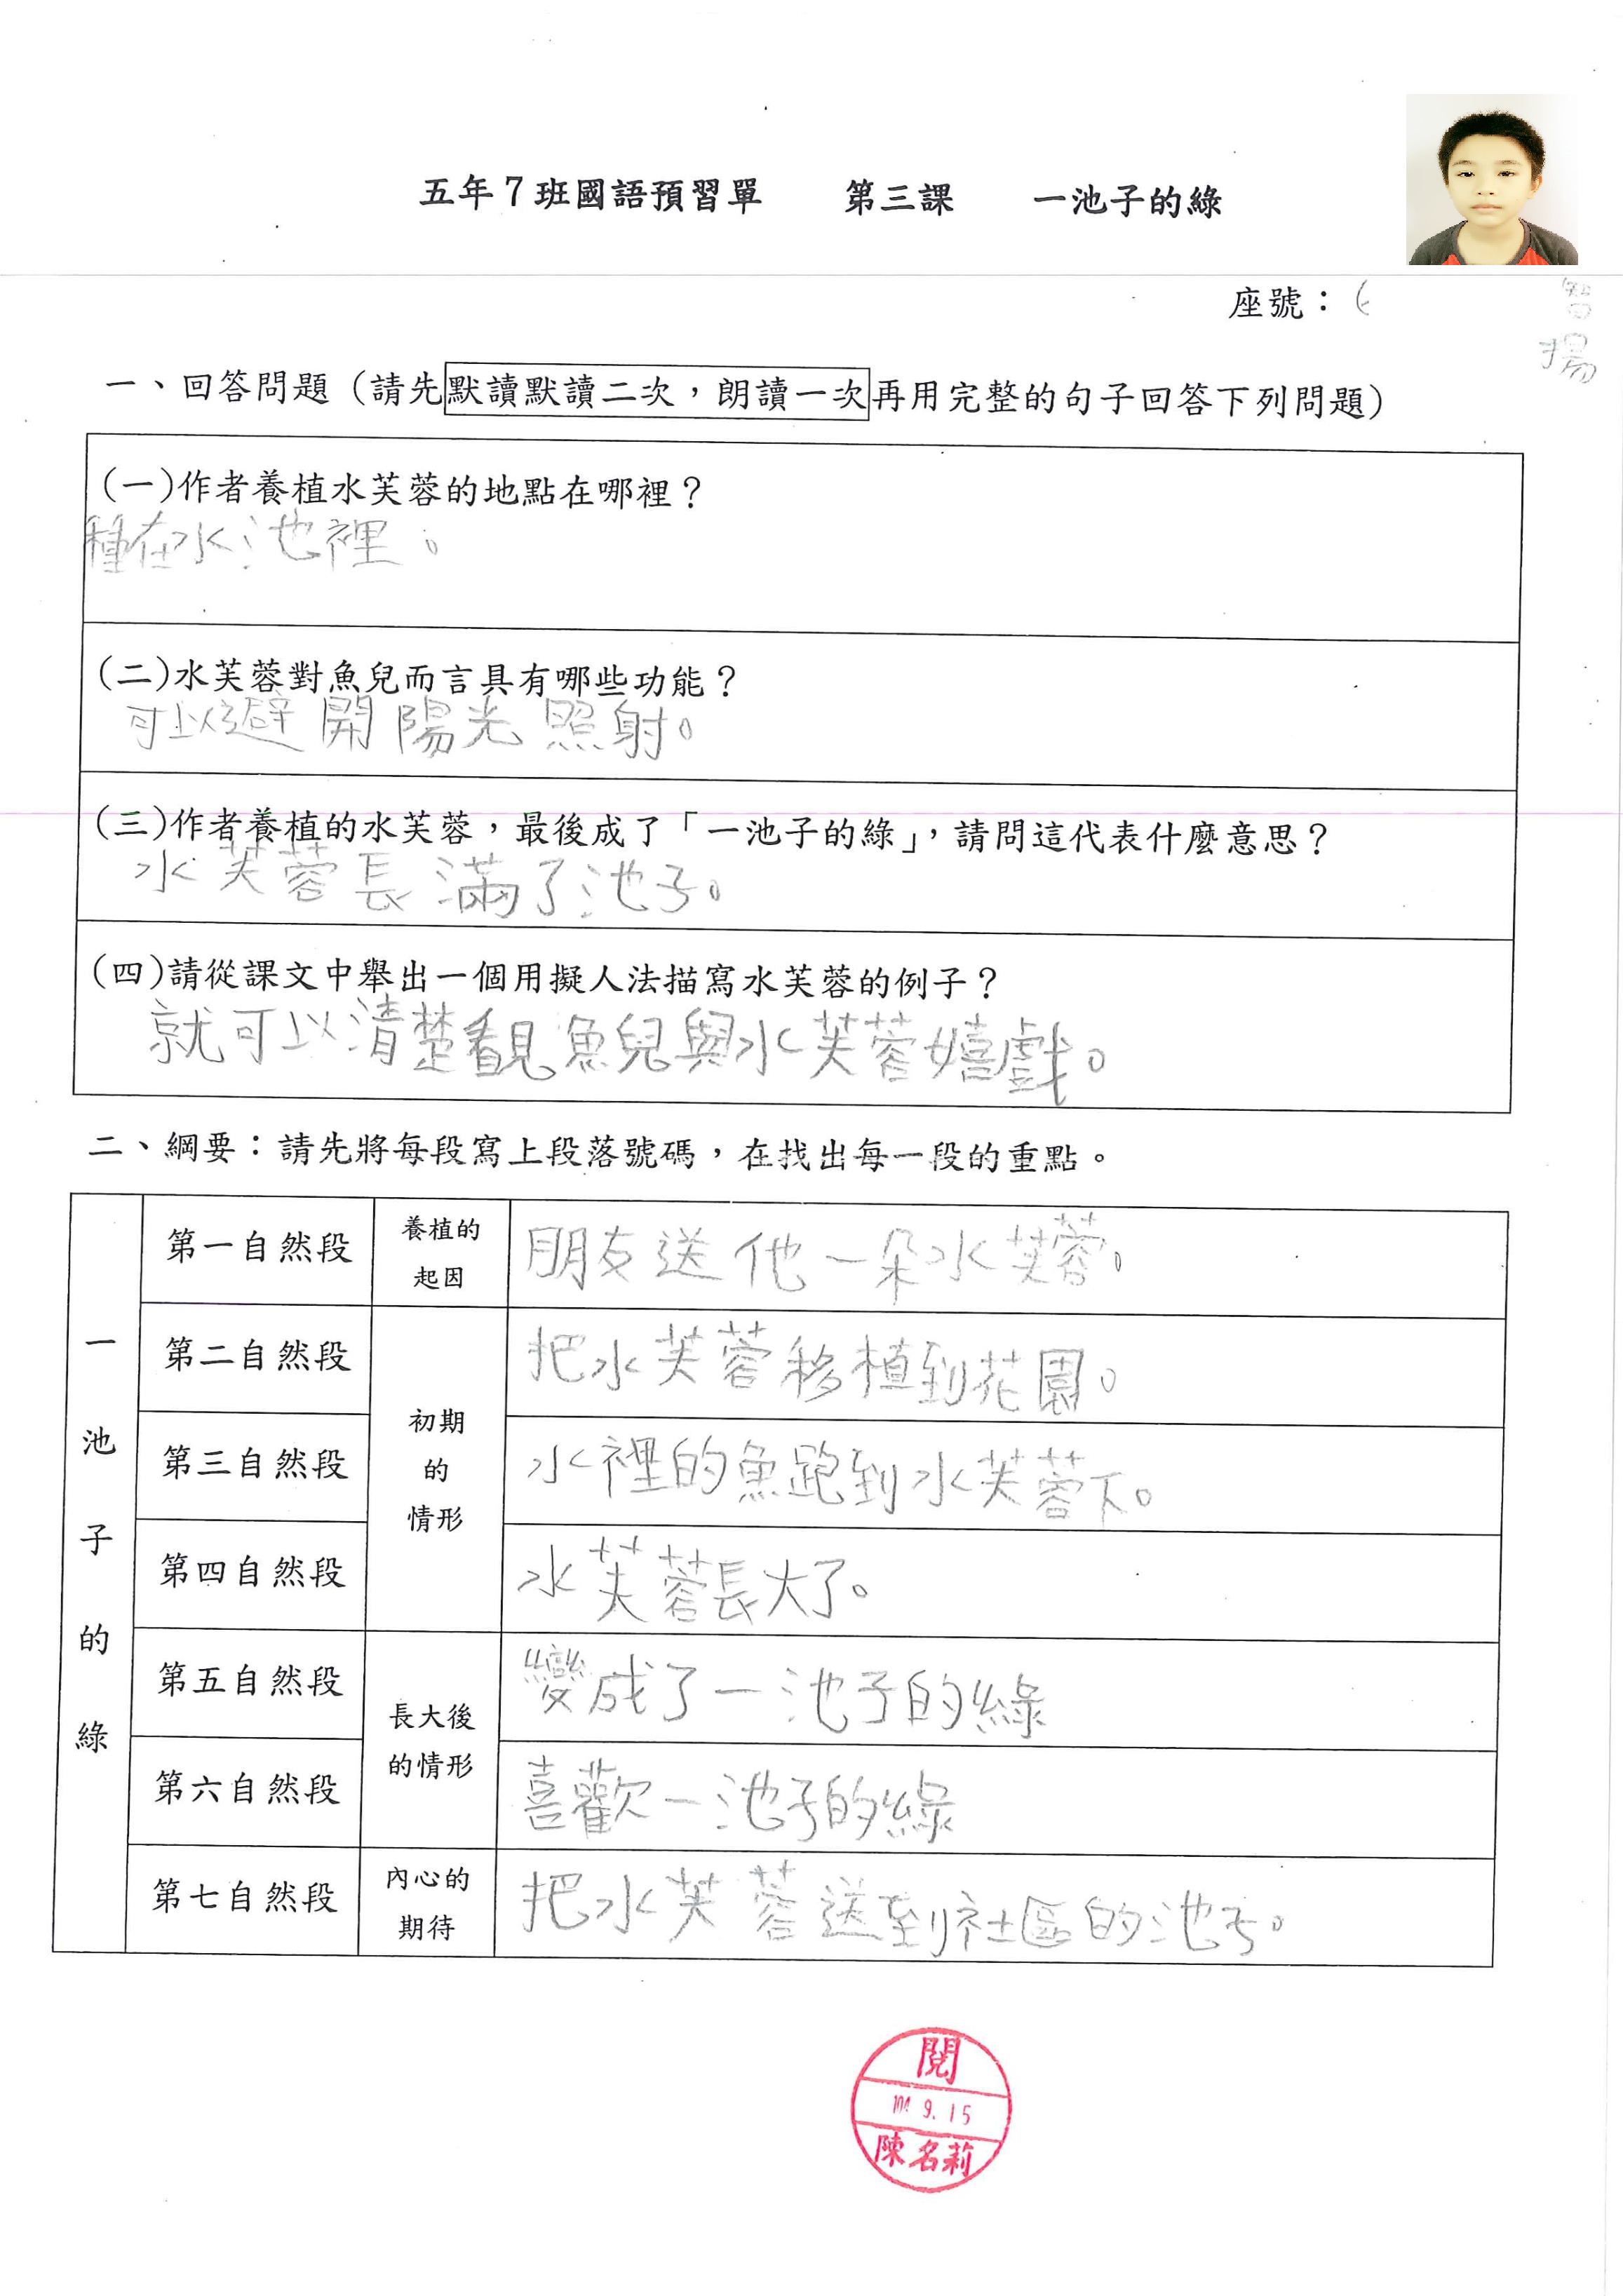 五年7班國語預習單 第三課 一池子的綠
座號：
智
揚
一、回答問題（請先默讀默讀二次，朗讀一次再用完整的句子回答下列問題）
(一)作者養植水芙蓉的地點在哪裡？
種在水池裡。
(二)水芙蓉對魚兒而言具有哪些功能？
可以避開陽光照射。
(三)作者養植的水芙蓉，最後成了「一池子的綠」，請問這代表什麼意思？
水芙蓉長滿了池子。
(四)請從課文中舉出一個用擬人法描寫水芙蓉的例子？
就可以清楚看見魚兒與水芙蓉嬉戲。
二、綱要：請先將每段寫上段落號碼，在找出每一段的重點。
一池子的綠
第一自然段 養植的起因 朋友送他一朵水芙蓉。
第二自然段 初期的情形 把水芙蓉移植到花園。
第三自然段 水裡的魚跑到水芙蓉下。
第四自然段 水芙蓉長大了。
第五自然段 長大後的情形 變成了一池子的綠
第六自然段 喜歡一池子的綠
第七自然段 內心的期待 把水芙蓉送到社區的池子。
閱
9.15
陳名莉